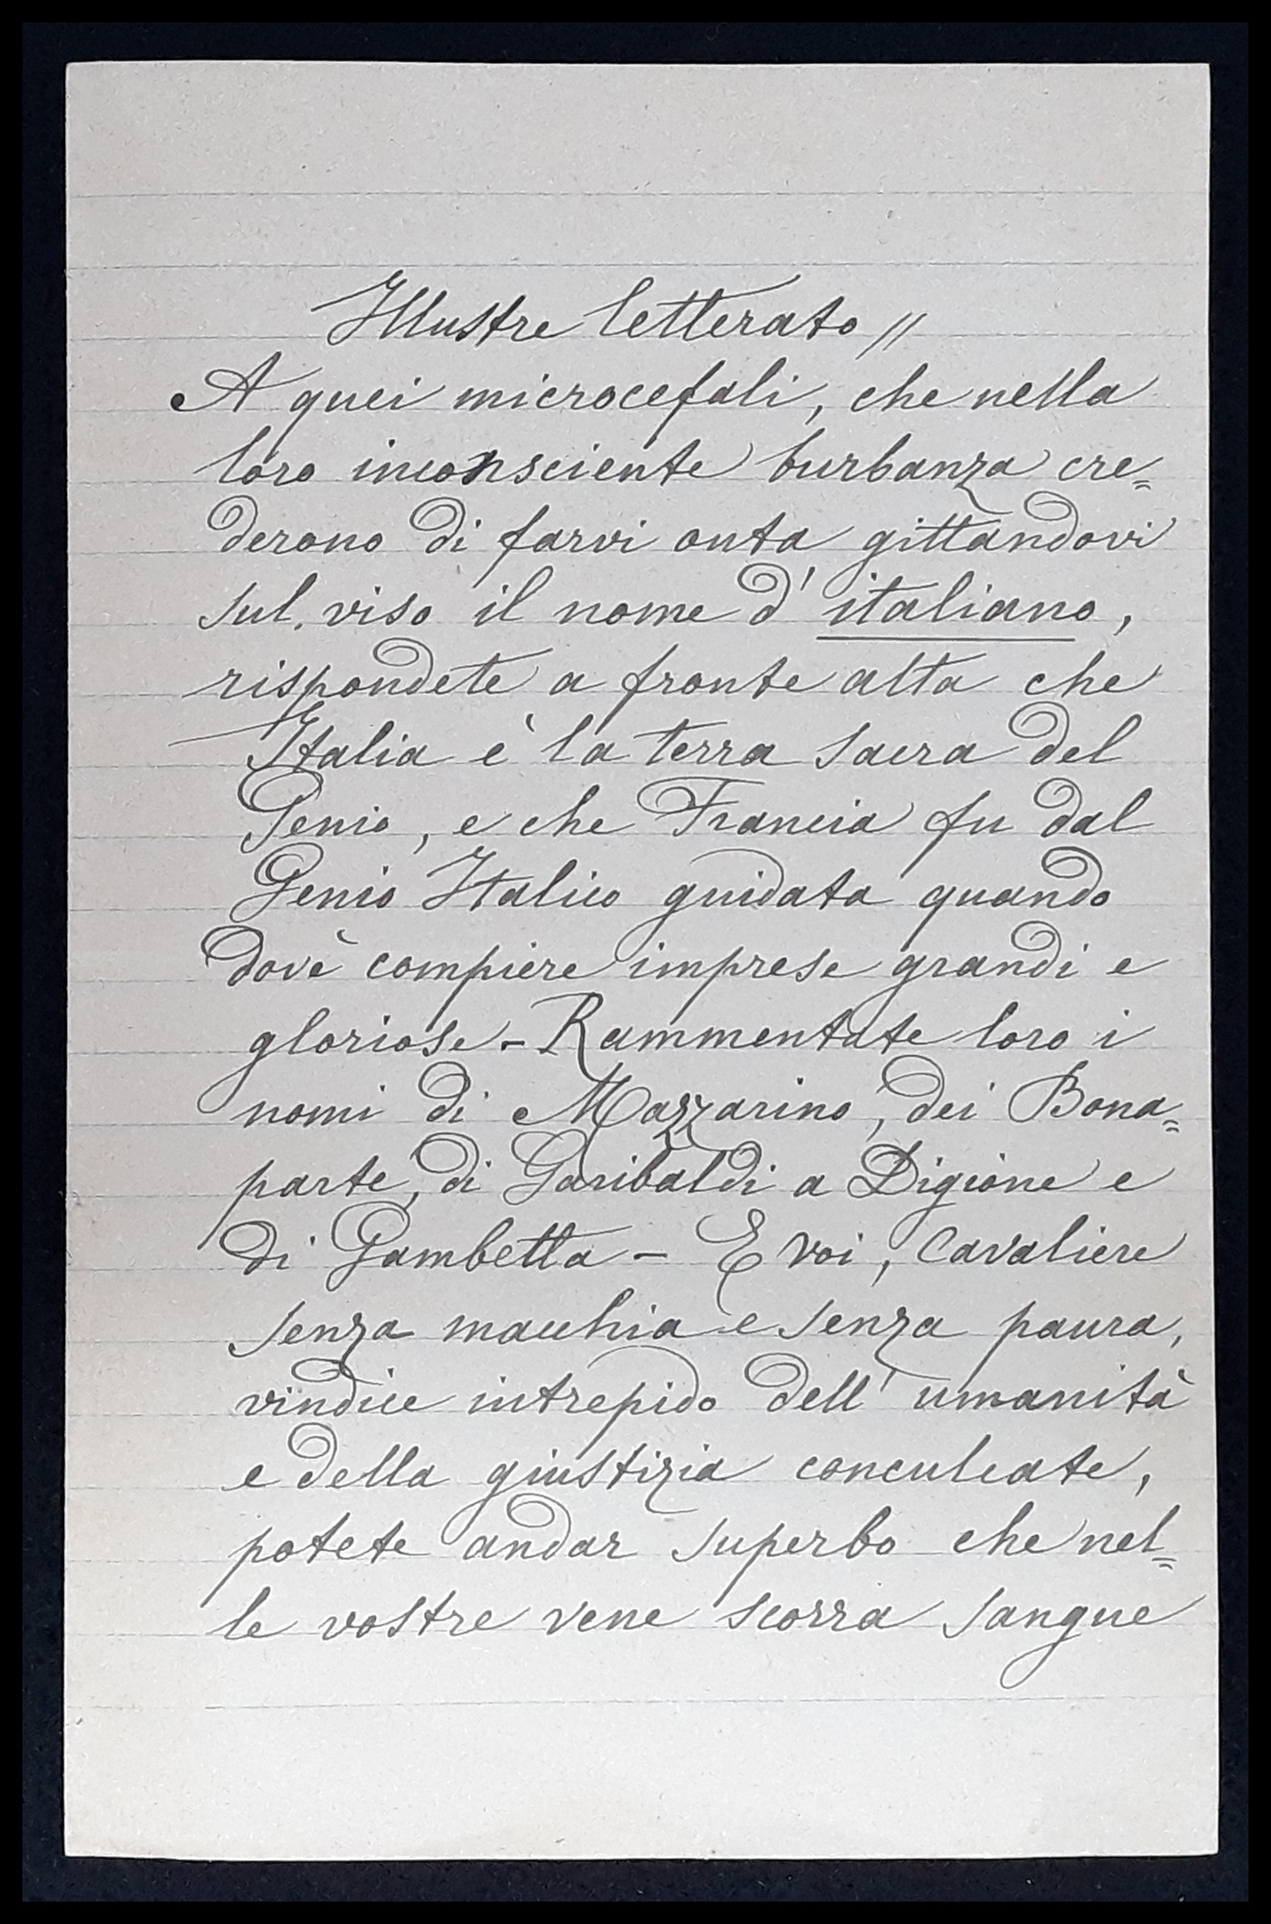 Illustre letterato //
A quei microcefali, che nella
loro inconsciente burbanza cre=
derono di farvi onta gittandovi
sul viso il nome d'italiano,
rispondete a fronte alta che
Italia è la terra sacra del
Genio, e che Francia fu dal
Genio Italico guidata quando
dovè compiere imprese grandi e
gloriose - Rammentate loro i
nomi di Mazzarino, dei Bona=
parte, di Garibaldi a Digione e
di Gambetta - E voi, cavaliere
senza macchia e senza paura,
vindice intrepido dell'umanità
e della giustizia conculcate,
potete andar superbo che nel=
le vostre vene scorra sangue